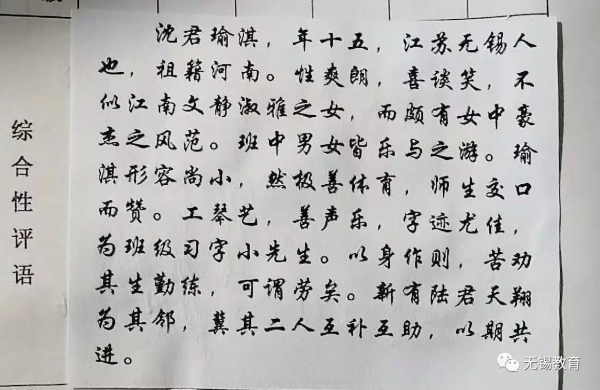 综合性评语
沈君瑜淇，年十五，江苏无锡人
也，祖籍河南。性爽朗，喜谈笑，不
似江南文静淑雅之女，而颇有女中豪
杰之风范。班中男女皆乐与之游。瑜
淇形容尚小，然极善体育，师生交口
而赞。工琴艺，善声乐，字迹尤佳，
为班级习字小先生。以身作则，苦劝
其生勤练，可谓劳矣。新有陆君天翔
为其邻，冀其二人互补互助，以期共
进。
无锡教育